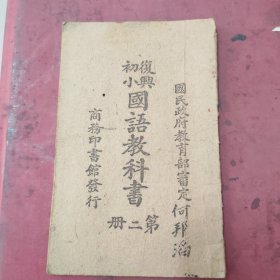 國民政府教育部審定
何邦滔
復興
初小
國語教科書
第二册
商務印書館發行